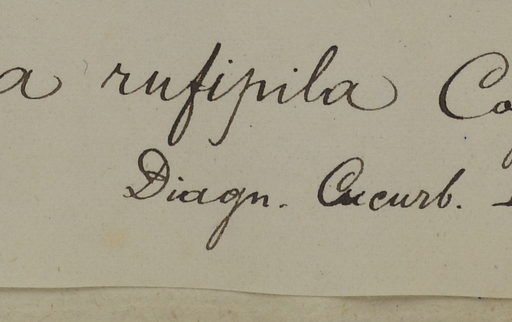 a rufipila Co
Diagn. Cucurb.